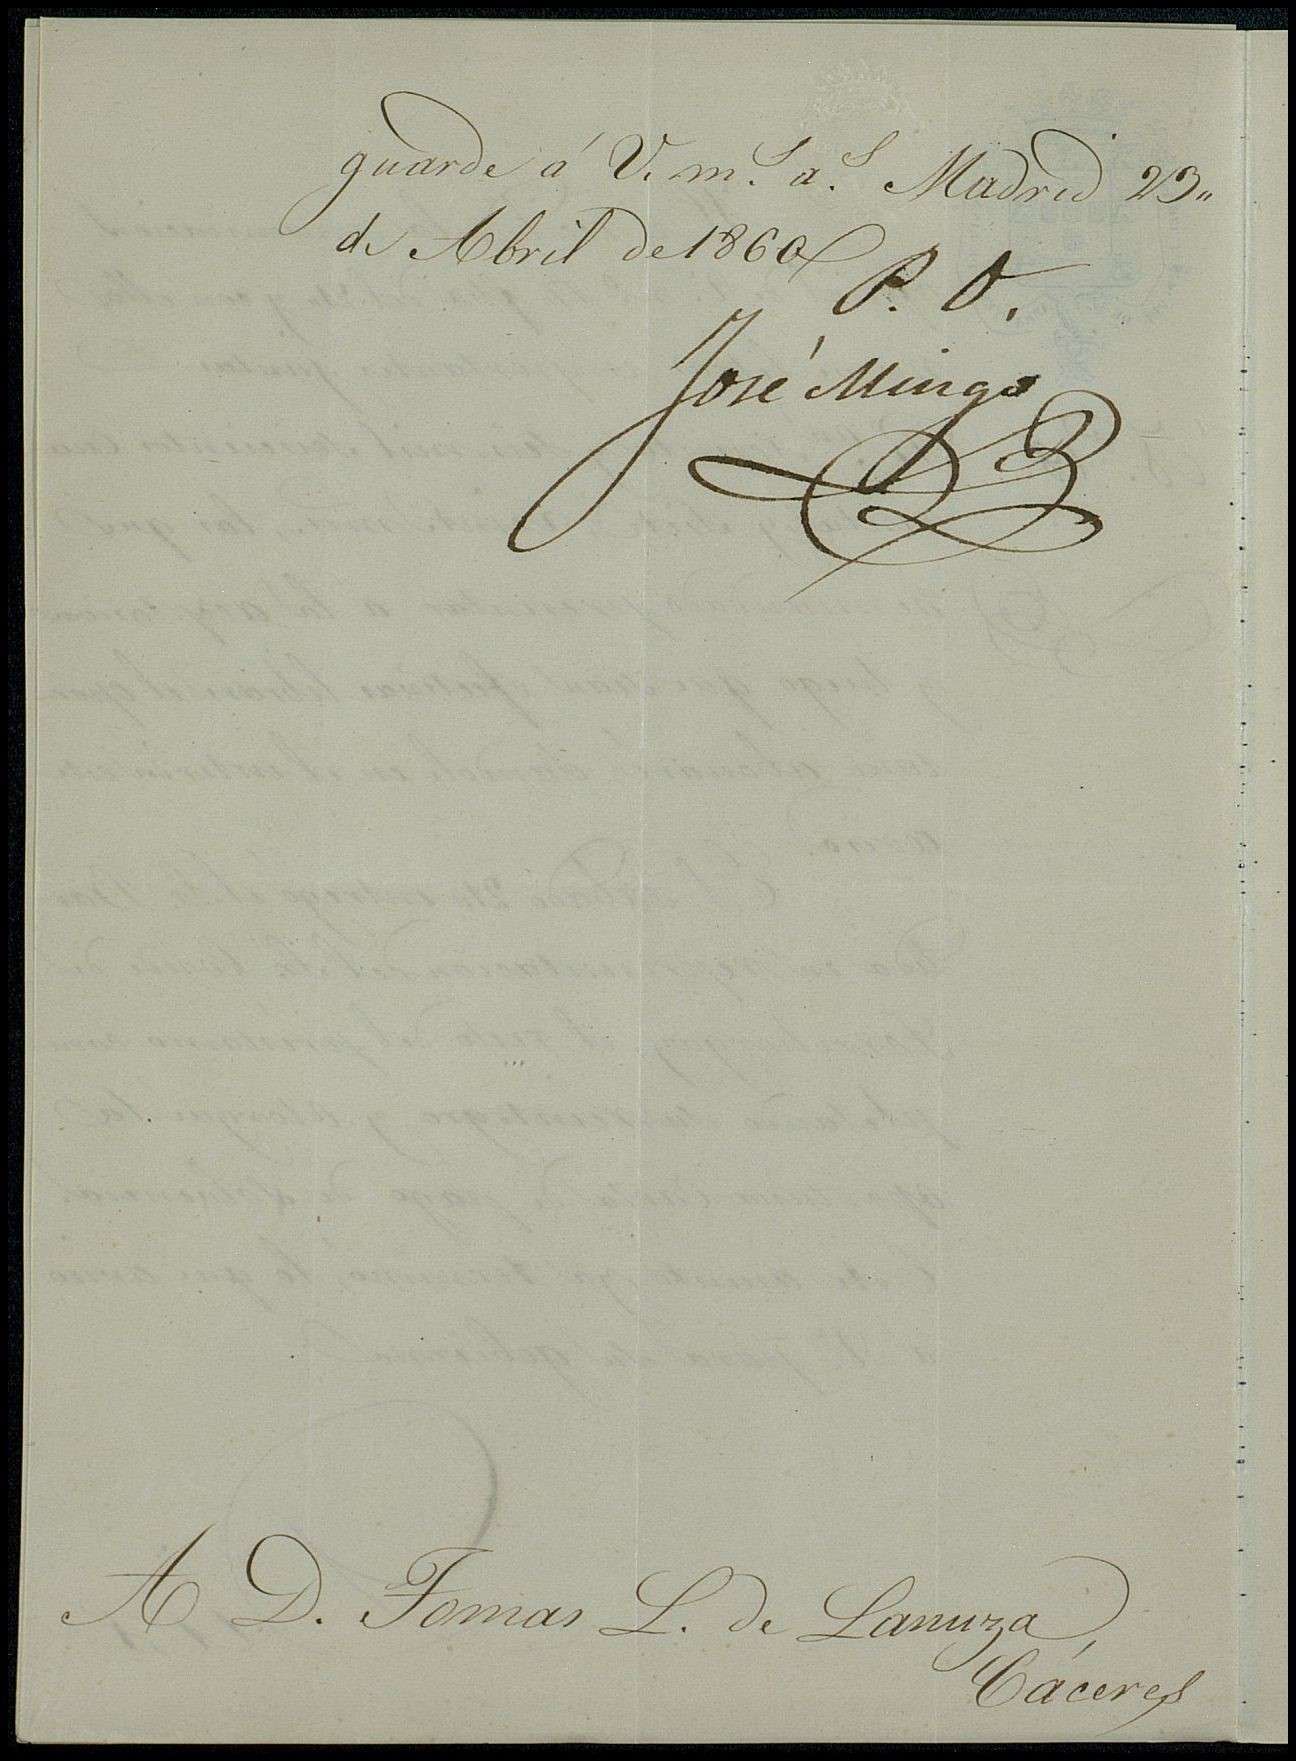 guarde á V. m.s a.s Madrid 23,,
de Abril de 1860
P. O.
José Mingo
A D. Tomas L. de Lanuza,
Cáceres